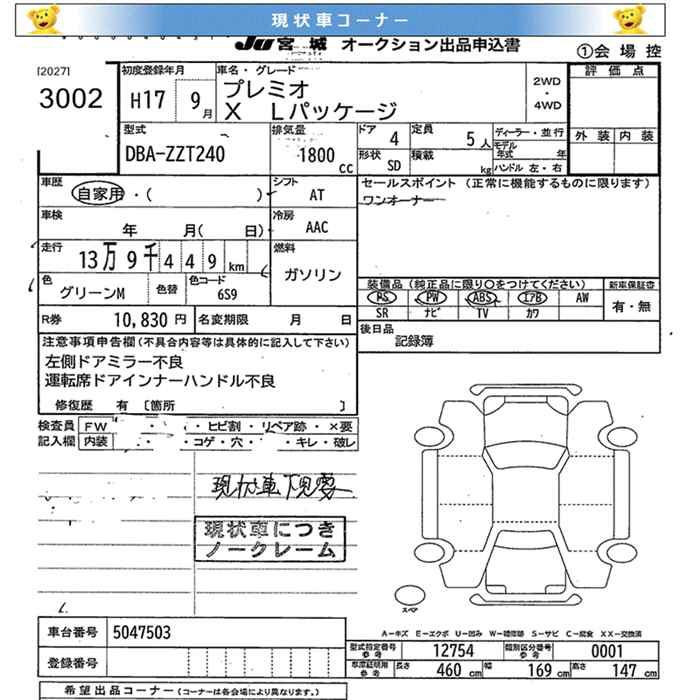 現状車コーナー
JU宮城 オークション出品申込書
①会場控
[2027]
3002
初度登録年月
H17 9月
車名・グレード
プレミオ
X Lパッケージ
2WD
・
4WD
評価点
外装 内装
型式
DBA-ZZT240
排気量
1800cc
ドア 4 定員 5人
形状 SD 積載 kg
ディーラー・並行
モデル年式 年
ハンドル 左・右
車歴
自家用・( )
シフト AT
セールスポイント(正常に機能するものに限ります)
ワンオーナー
車検 年 月( 日)
冷房 AAC
走行
13万9千449km
燃料
ガソリン
色
グリーンM
色替
色コード
6S9
装備品(純正品に限り○をつけてください)
新車保証書
PS PW ABS エアB AW
SR ナビ TV カワ
有・無
R券 10,830円 名変期限 月 日
後日品
記録簿
注意事項申告欄(不具合内容等は具体的に記入して下さい)
左側ドアミラー不良
運転席ドアインナーハンドル不良
修復歴 有 [箇所 ]
検査員 FW ・ ・ ・ヒビ割・リペア跡・×要
記入欄 内装 ・コゲ・穴 ・キレ・破レ
現状車下見要
現状車につき
ノークレーム
スペア
A−キズ E−エクボ U−凹み W−補修跡 S−サビ C−腐食 XX−交換済
車台番号 5047503
型式指定番号 参考 12754 類別区分番号 参考 0001
登録番号
車庫証明用 参考 長さ 460cm 幅 169cm 高さ 147cm
希望出品コーナー(コーナーは各会場により異なります。)